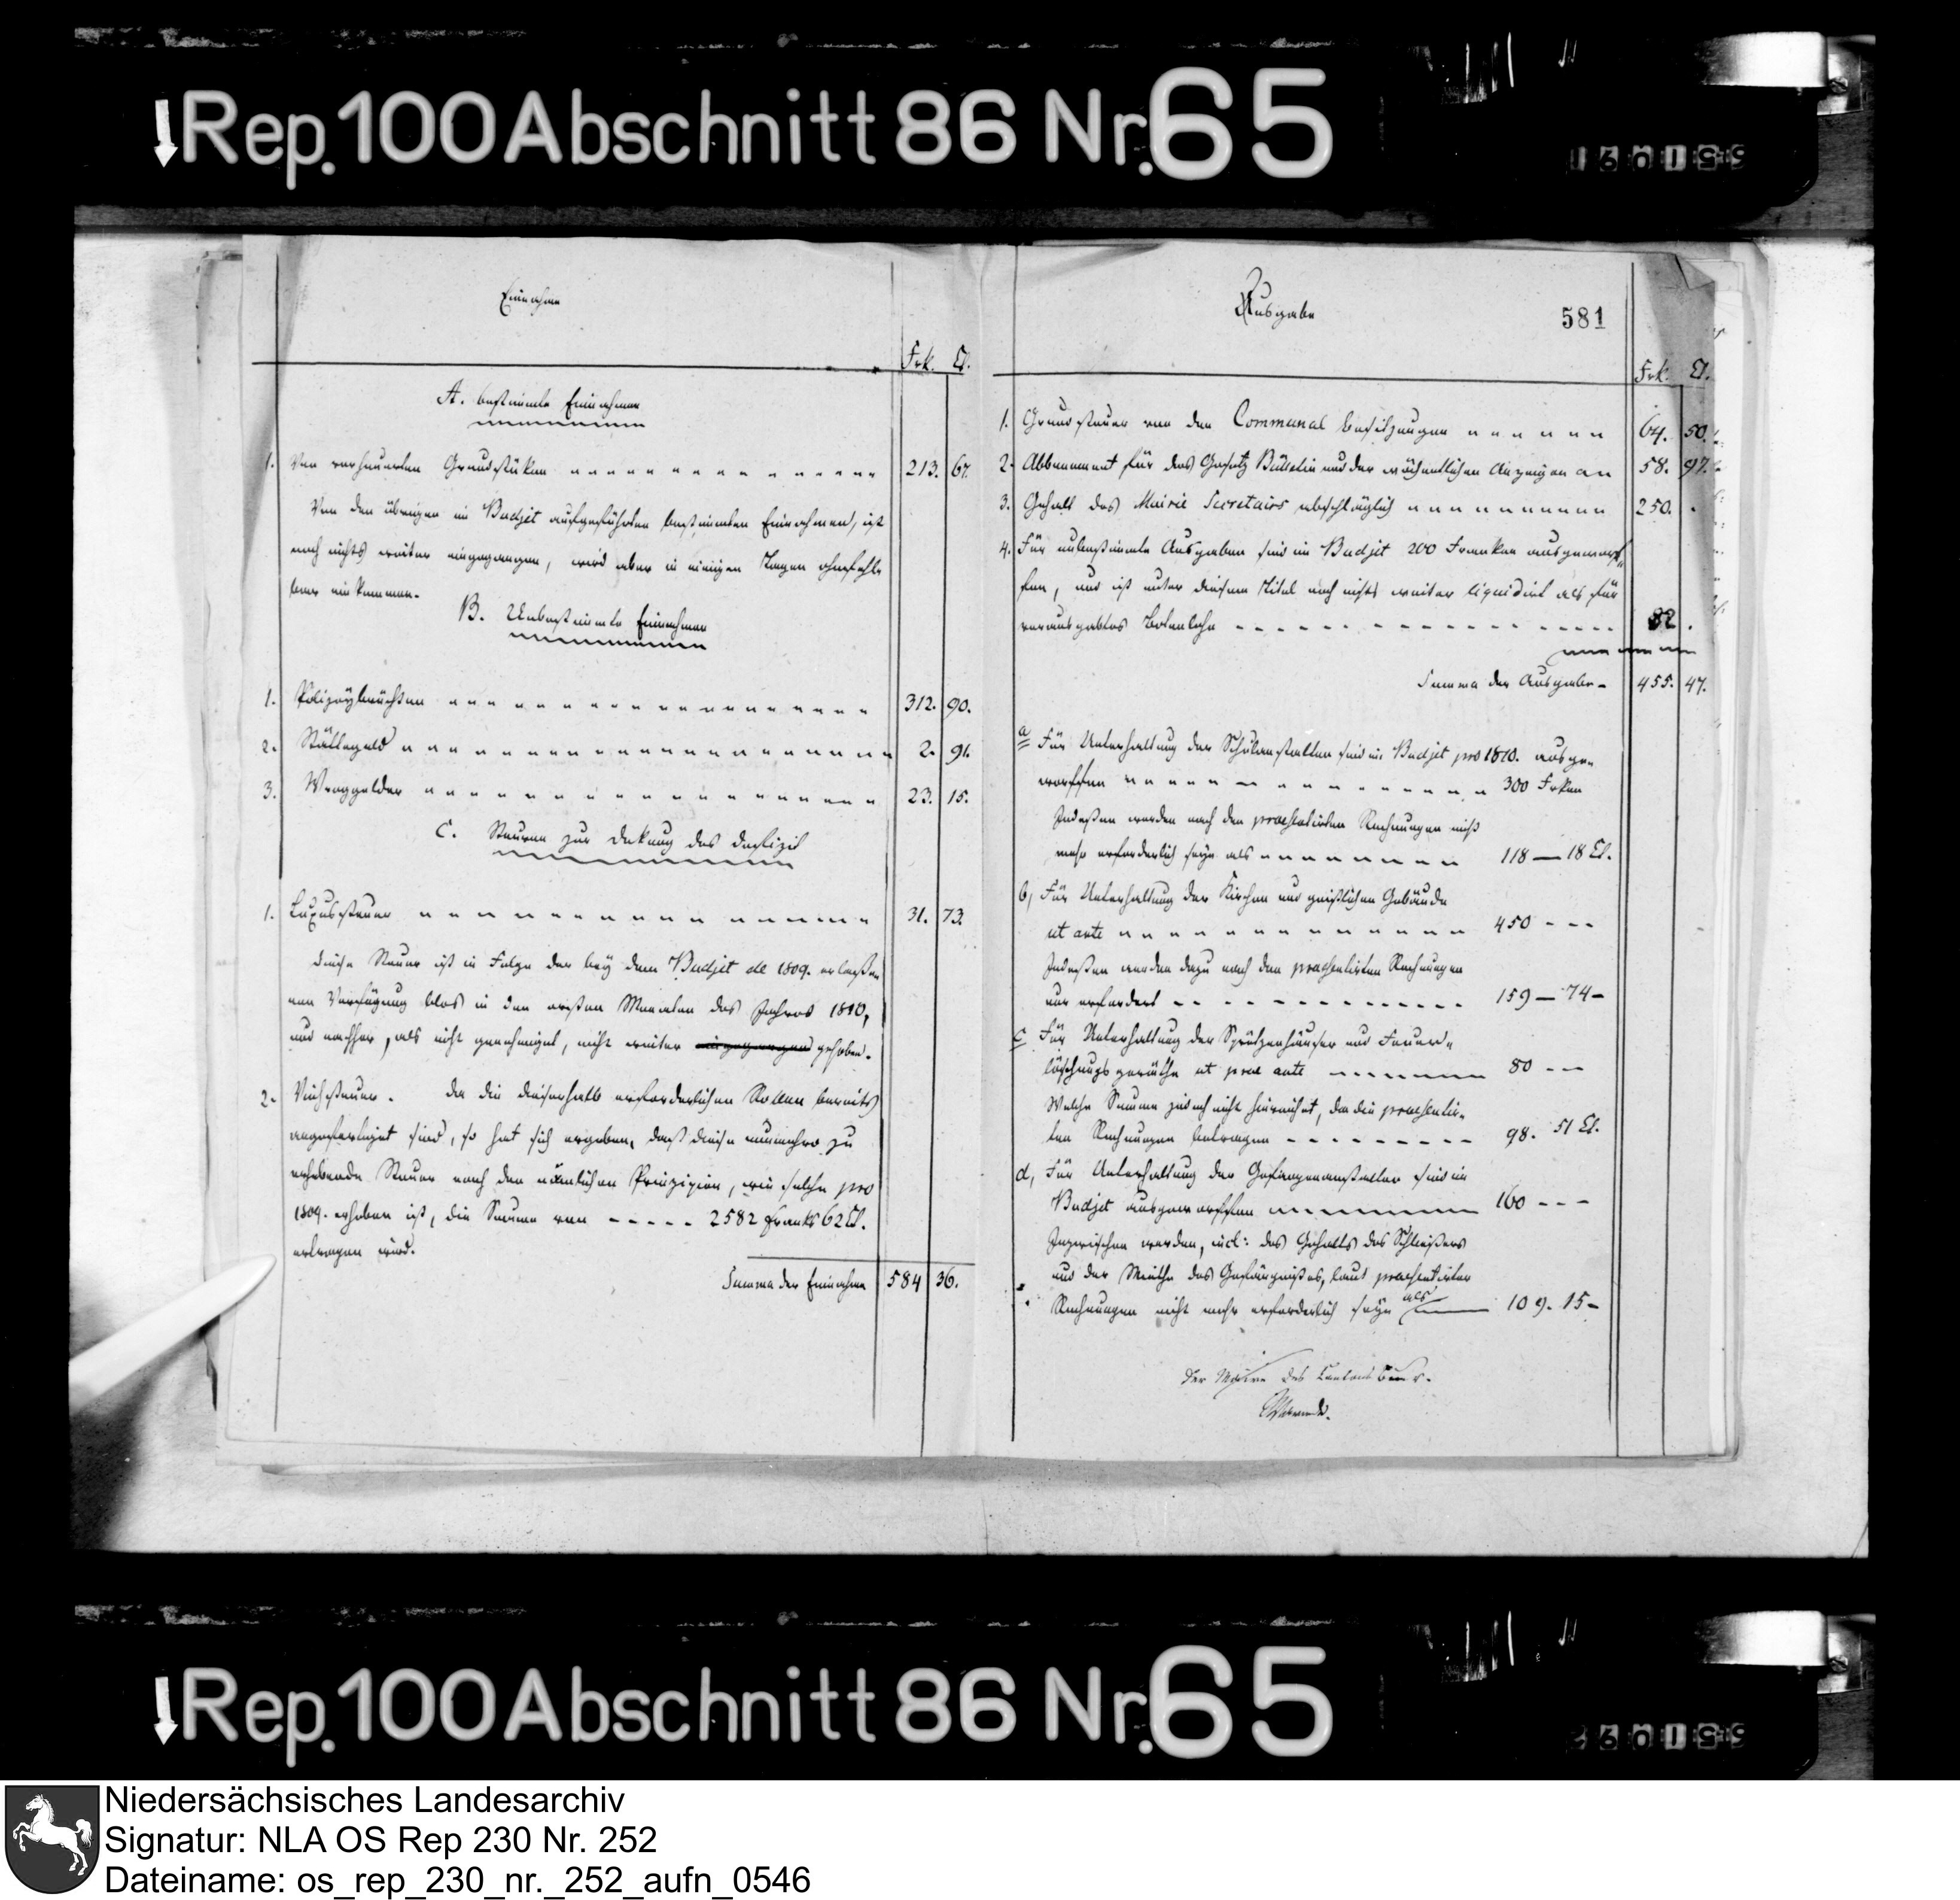 Rep. 100 Abschnitt 86 Nr. 65
Einnahme
Frk. Ct.
A. bestimmte Einnahmen
1. Von verheuerten Grundstüken 213. 67.
Von den übrigen im Budjet aufgeführten bestimmten Einnahmen, ist
noch nichts weiter eingegangen, wird aber in einigen Tagen ohnfehl-
bar einkommen.
B. Unbestimmte Einnahmen
1. Polizeybrüchten 312. 90.
2. Stättegeld 2. 91.
3. Wroggelder 23. 15.
C. Steuren zur Dekung des Defizit
1. Luxussteuer 31. 73.
Diese Steuer ist in Folge der bey dem Budjet de 1809. erlaße-
nen Verfügung blos in den ersten Monaten des Jahres 1810,
und nachher, als nicht genehmigt, nicht weiter eingegangen gehoben.
2. Viehsteuer. Da die dieserhalb erforderlichen Rollen bereits
angefertiget sind, so hat sich ergeben, daß diese nunmehro zu
erhebende Steuer nach den nämlichen Prinzipien, wie solche pro
1809. erhoben ist, die Summe von ----- 2582 Franks 62 Ct.
ertragen wird.
Summa der Einnahme 584 36.
Ausgabe
581
Frk. Ct.
1. Grundsteuer von den Communal Besitzungen 64. 50.
2. Abbonnement für das Gesetz Bülletin und der wöchentlichen Anzeigen an 58. 97.
3. Gehalt des Mairie Secretairs abschläglich 250. .
4. Für unbestimmte Ausgaben sind im Budjet 200 Franken ausgeworf-
fen, und ist unter diesem Titel noch nichts weiter liquidirt als für
verausgabtes Botenlohn 82 .
Summa der Ausgabe 455. 47.
a Für Unterhaltung der Schulanstalten sind im Budjet pro 1810. ausge-
worffen 300 Frken
Indeßen werden nach den praesentirten Rechnungen nicht
mehr erforderlich seyn als 118 — 18 Ct.
b, Für Unterhaltung der Kirchen und geistlichen Gebäude
ut ante 450 ---
Indeßen werden dazu nach den praesentirten Rechnungen
nur erfordert 159 — 74 –
c Für Unterhaltung der Sprützenhäuser und Feuer-
löschungsgeräthe ut prae ante 80 ---
Welche Summe jedoch nicht hinreichet, da die praesentir-
ten Rechnungen betragen 98. 51 Ct.
d, Für Unterhaltung der Gefangenanstalten sind im
Budjet ausgeworffen 160 ---
Inzwischen werden, incl: des Gehalts des Schließers
und der Miethe des Gefängnißes, laut praesentirter
Rechnungen nicht mehr erforderlich seyn als 109. 15 –
Der Maire des Cantons
Rep. 100 Abschnitt 86 Nr. 65
Niedersächsisches Landesarchiv
Signatur: NLA OS Rep 230 Nr. 252
Dateiname: os_rep_230_nr._252_aufn_0546